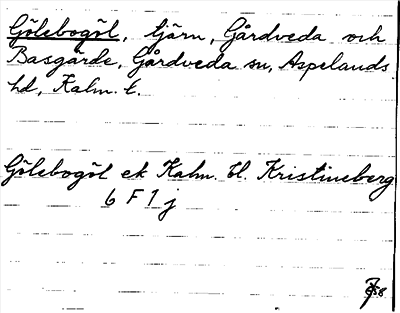 Gölebogöl, tjärn, Gårdveda och
Basgärde, Gårdveda sn, Aspelands
hd, Kalm. l.
Gölebogöl ek Kalm. bl. Kristineberg
6 F 1 j